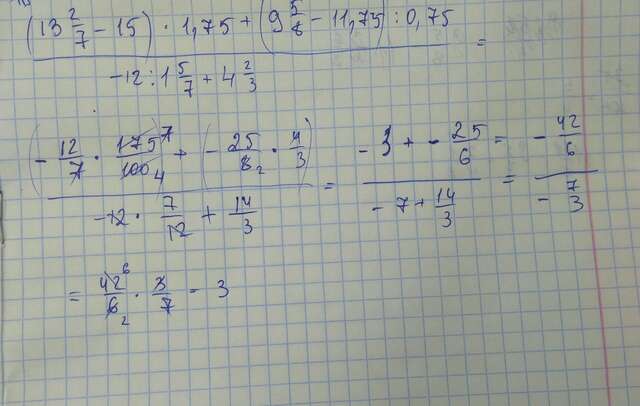 (13 2/7 - 15) · 1,75 + (9 5/8 - 11,75) : 0,75
=
-12 : 1 5/7 + 4 2/3
(- 12/7 · 175 7/100 4 + (- 25/8 2 · 4/3) = - 3 + - 25/6 = - 42/6
-12 · 7/12 + 14/3 = - 7 + 14/3 = - 7/3
= 42 6/6 2 · 3/7 = 3